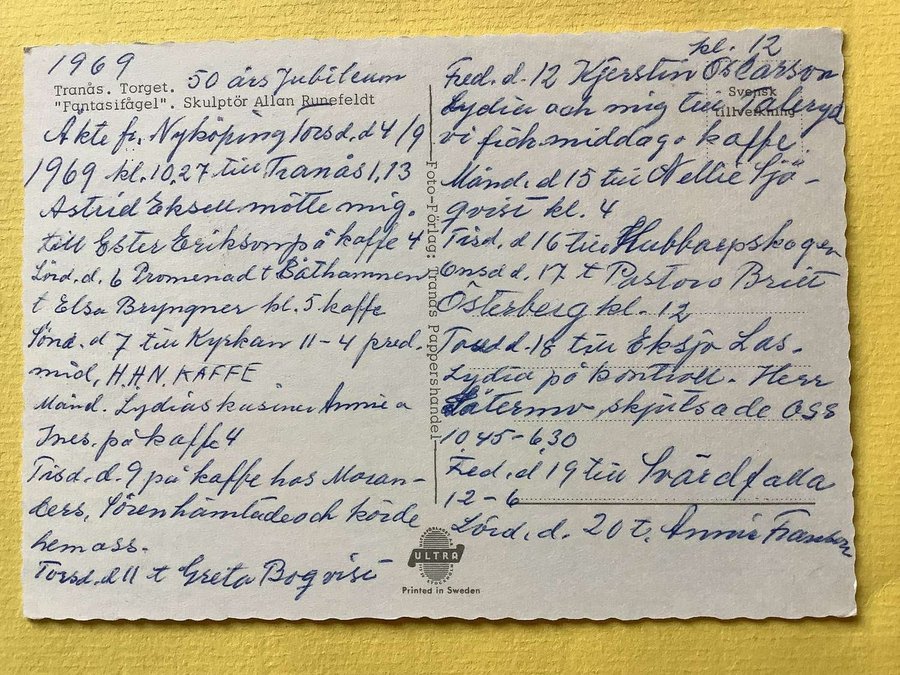 1969
Tranås. Torget. 50 års Jubileum
"Fantasifågel". Skulptör Allan Runefeldt
Åkte fr. Nyköping Torsd. d 4/9
1969 kl. 10,27 till Tranås 1,13
Astrid Eksell mötte mig.
till Ester Erikson på kaffe 4
Lörd. d. 6 Promenad t Båthamnen
t Elsa Bryngner kl. 5 kaffe
Sönd. d 7 till Kyrkan 11-4 pred.
mid, H.H.N. KAFFE
Månd. Lydias kusiner Annie a
Ines. på kaffe 4
Tisd. d. 9 på kaffe hos Moran-
ders, Sören hämtade och körde
hem oss.
Torsd. d 11 t Greta Boqvist
Foto-Förlag: Tranås Pappershandel
ULTRA
Printed in Sweden
kl. 12
Fred. d. 12 Kjerstin Oscarson
Svensk
tillverkning
Lydia och mig till
vi fick middag o kaffe
Månd. d 15 till Nellie Sjö-
qvist kl. 4
Tisd. d 16 till Hubbarpskogen
Onsd d. 17 t Pastors Britt
Österberg kl. 12
Torsd d. 18 till Eksjö Las.
Lydia på kontroll. Herr
Sätermo skjutsade oss
10 45-6 30
Fred. d. 19 till Svärdfalla
12-6
Lörd. d. 20 t. Annie Franson